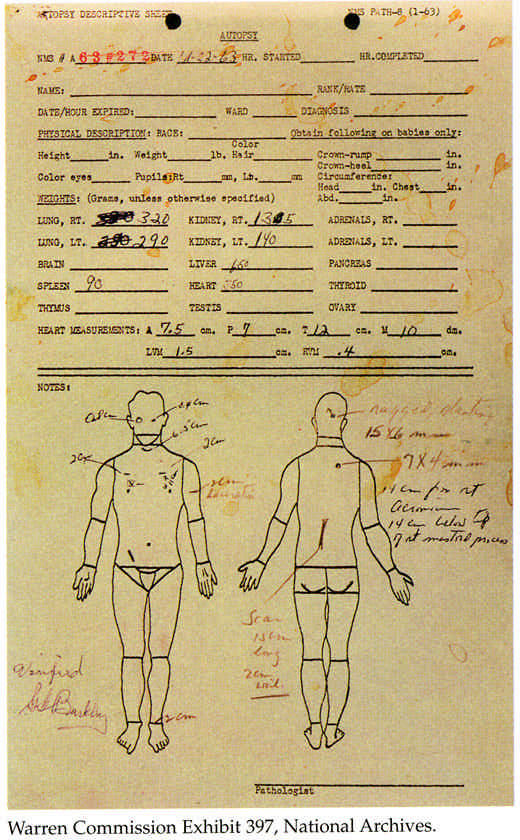 AUTOPSY DESCRIPTIVE SHEET NMS PATH-8 (1-63)
AUTOPSY
NMS # A 63#272 DATE 11-22-63 HR. STARTED HR. COMPLETED
NAME: RANK/RATE
DATE/HOUR EXPIRED: WARD DIAGNOSIS
PHYSICAL DESCRIPTION: RACE: Obtain following on babies only:
Color
Height in. Weight lb. Hair Crown-rump in.
Crown-heel in.
Color eyes Pupils:Rt mm, Lb. mm Circumference:
Head in. Chest in.
WEIGHTS: (Grams, unless otherwise specified) Abd. in.
LUNG, RT. 320 KIDNEY, RT. 135 ADRENALS, RT.
LUNG, LT. 290 KIDNEY, LT. 140 ADRENALS, LT.
BRAIN LIVER 650 PANCREAS
SPLEEN 90 HEART 350 THYROID
THYMUS TESTIS OVARY
HEART MEASUREMENTS: A 7.5 cm. P 7 cm. T 12 cm. M 10 dm.
LVM 1.5 cm. RVM .4 cm.
NOTES:
ragged, slanting
15 X 6 mm
6.5cm
2cm
2cm
7 X 4 mm
14 cm from rt
acromion
14 cm below tip
of rt mastoid process
Scar
15cm
long
2cm
Verified
GG Burkley
2cm
Pathologist
Warren Commission Exhibit 397, National Archives.